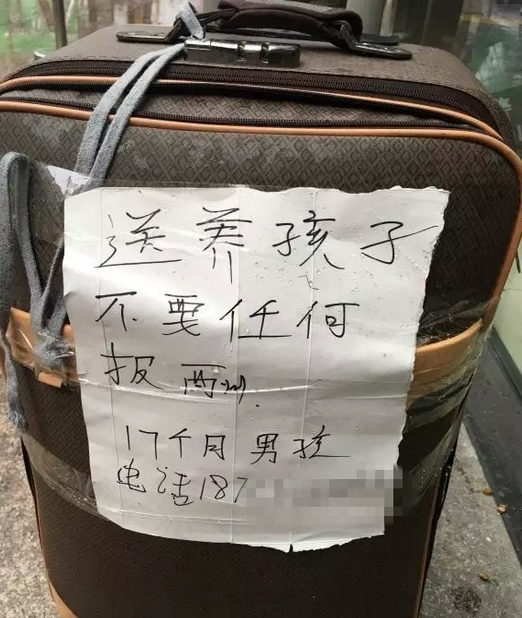 送养孩子
不要任何
报酬
17个月男孩
电话187